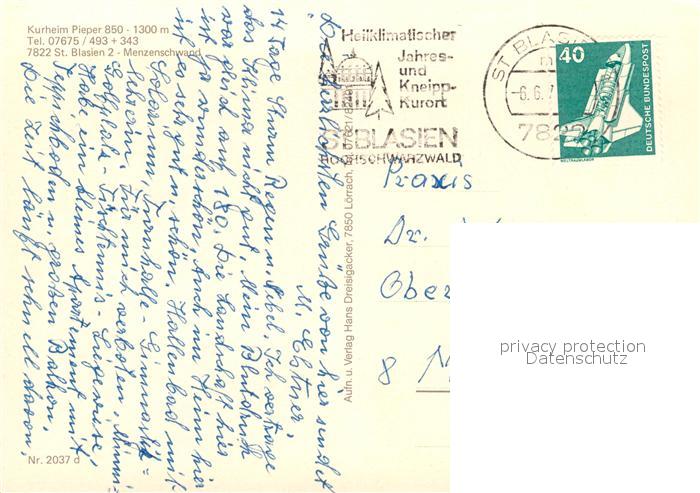 Kurheim Pieper 850 - 1300 m
Tel. 07675 / 493 + 343
7822 St. Blasien 2 - Menzenschwand
Heilklimatischer
Jahres-
und
Kneipp-
Kurort
ST. BLASIEN
HOCHSCHWARZWALD
ST BLASIEN
-6.6.7
7822
40
DEUTSCHE BUNDESPOST
WELTRAUMLABOR
Die herzlichsten Grüße von hier sendet
M. Ebner.
14 Tage Sturm Regen u. Nebel. Ich vertrage
das Klima nicht gut, Mein Blutdruck
war gleich auf 180. Die Landschaft hier
ist ja wunderschön, Auch im Heim hier
ist es sehr gut u. schön. Hallenbad mit
Solarium, Turnhalle - Gimnastik =
Für mich verboten, Minni-
Golfplatz - Tischtennis - Liegewiese,
Habe ein kleines Apartement mit
Teppichboden u. großen Balkon,
Die Zeit läuft schnell davon,
Praxis
Dr.
Ober
8 M
Aufn. u. Verlag Hans Dreisigacker, 7850 Lörrach,
Nr. 2037 d
privacy protection
Datenschutz